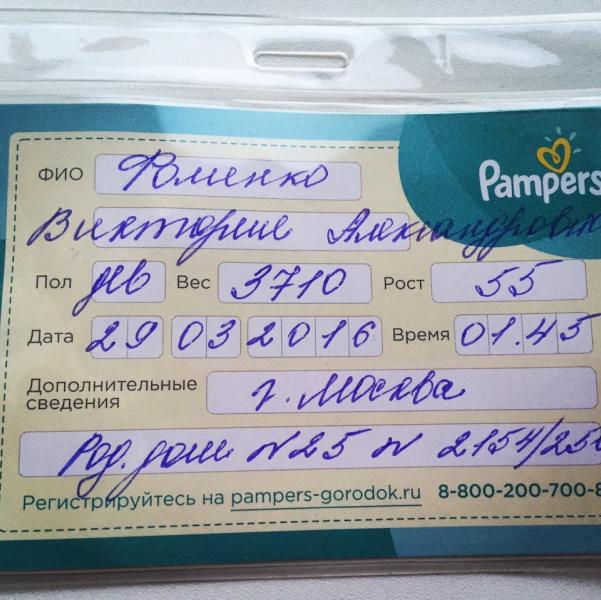 Pampers
ФИО Фоменко
Виктории Александровна
Пол дев Вес 3710 Рост 55
Дата 29 03 2016 Время 01.45
Дополнительные
сведения г. Москва
Род. дом N 25 N 2154/250
Регистрируйтесь на pampers-gorodok.ru 8-800-200-700-8